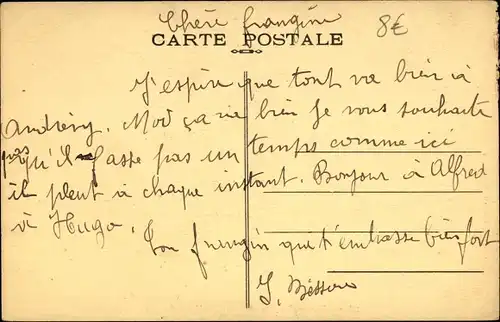 Chère frangine
8€
CARTE POSTALE
J'espère que tout va bien à
Andrésy. Moi ça va bien je vous souhaite
pas qu'il fasse pas un temps comme ici
il pleut à chaque instant. Bonjour à Alfred
à Hugo.
Ton frangin qui t'embrasse bien fort
J.